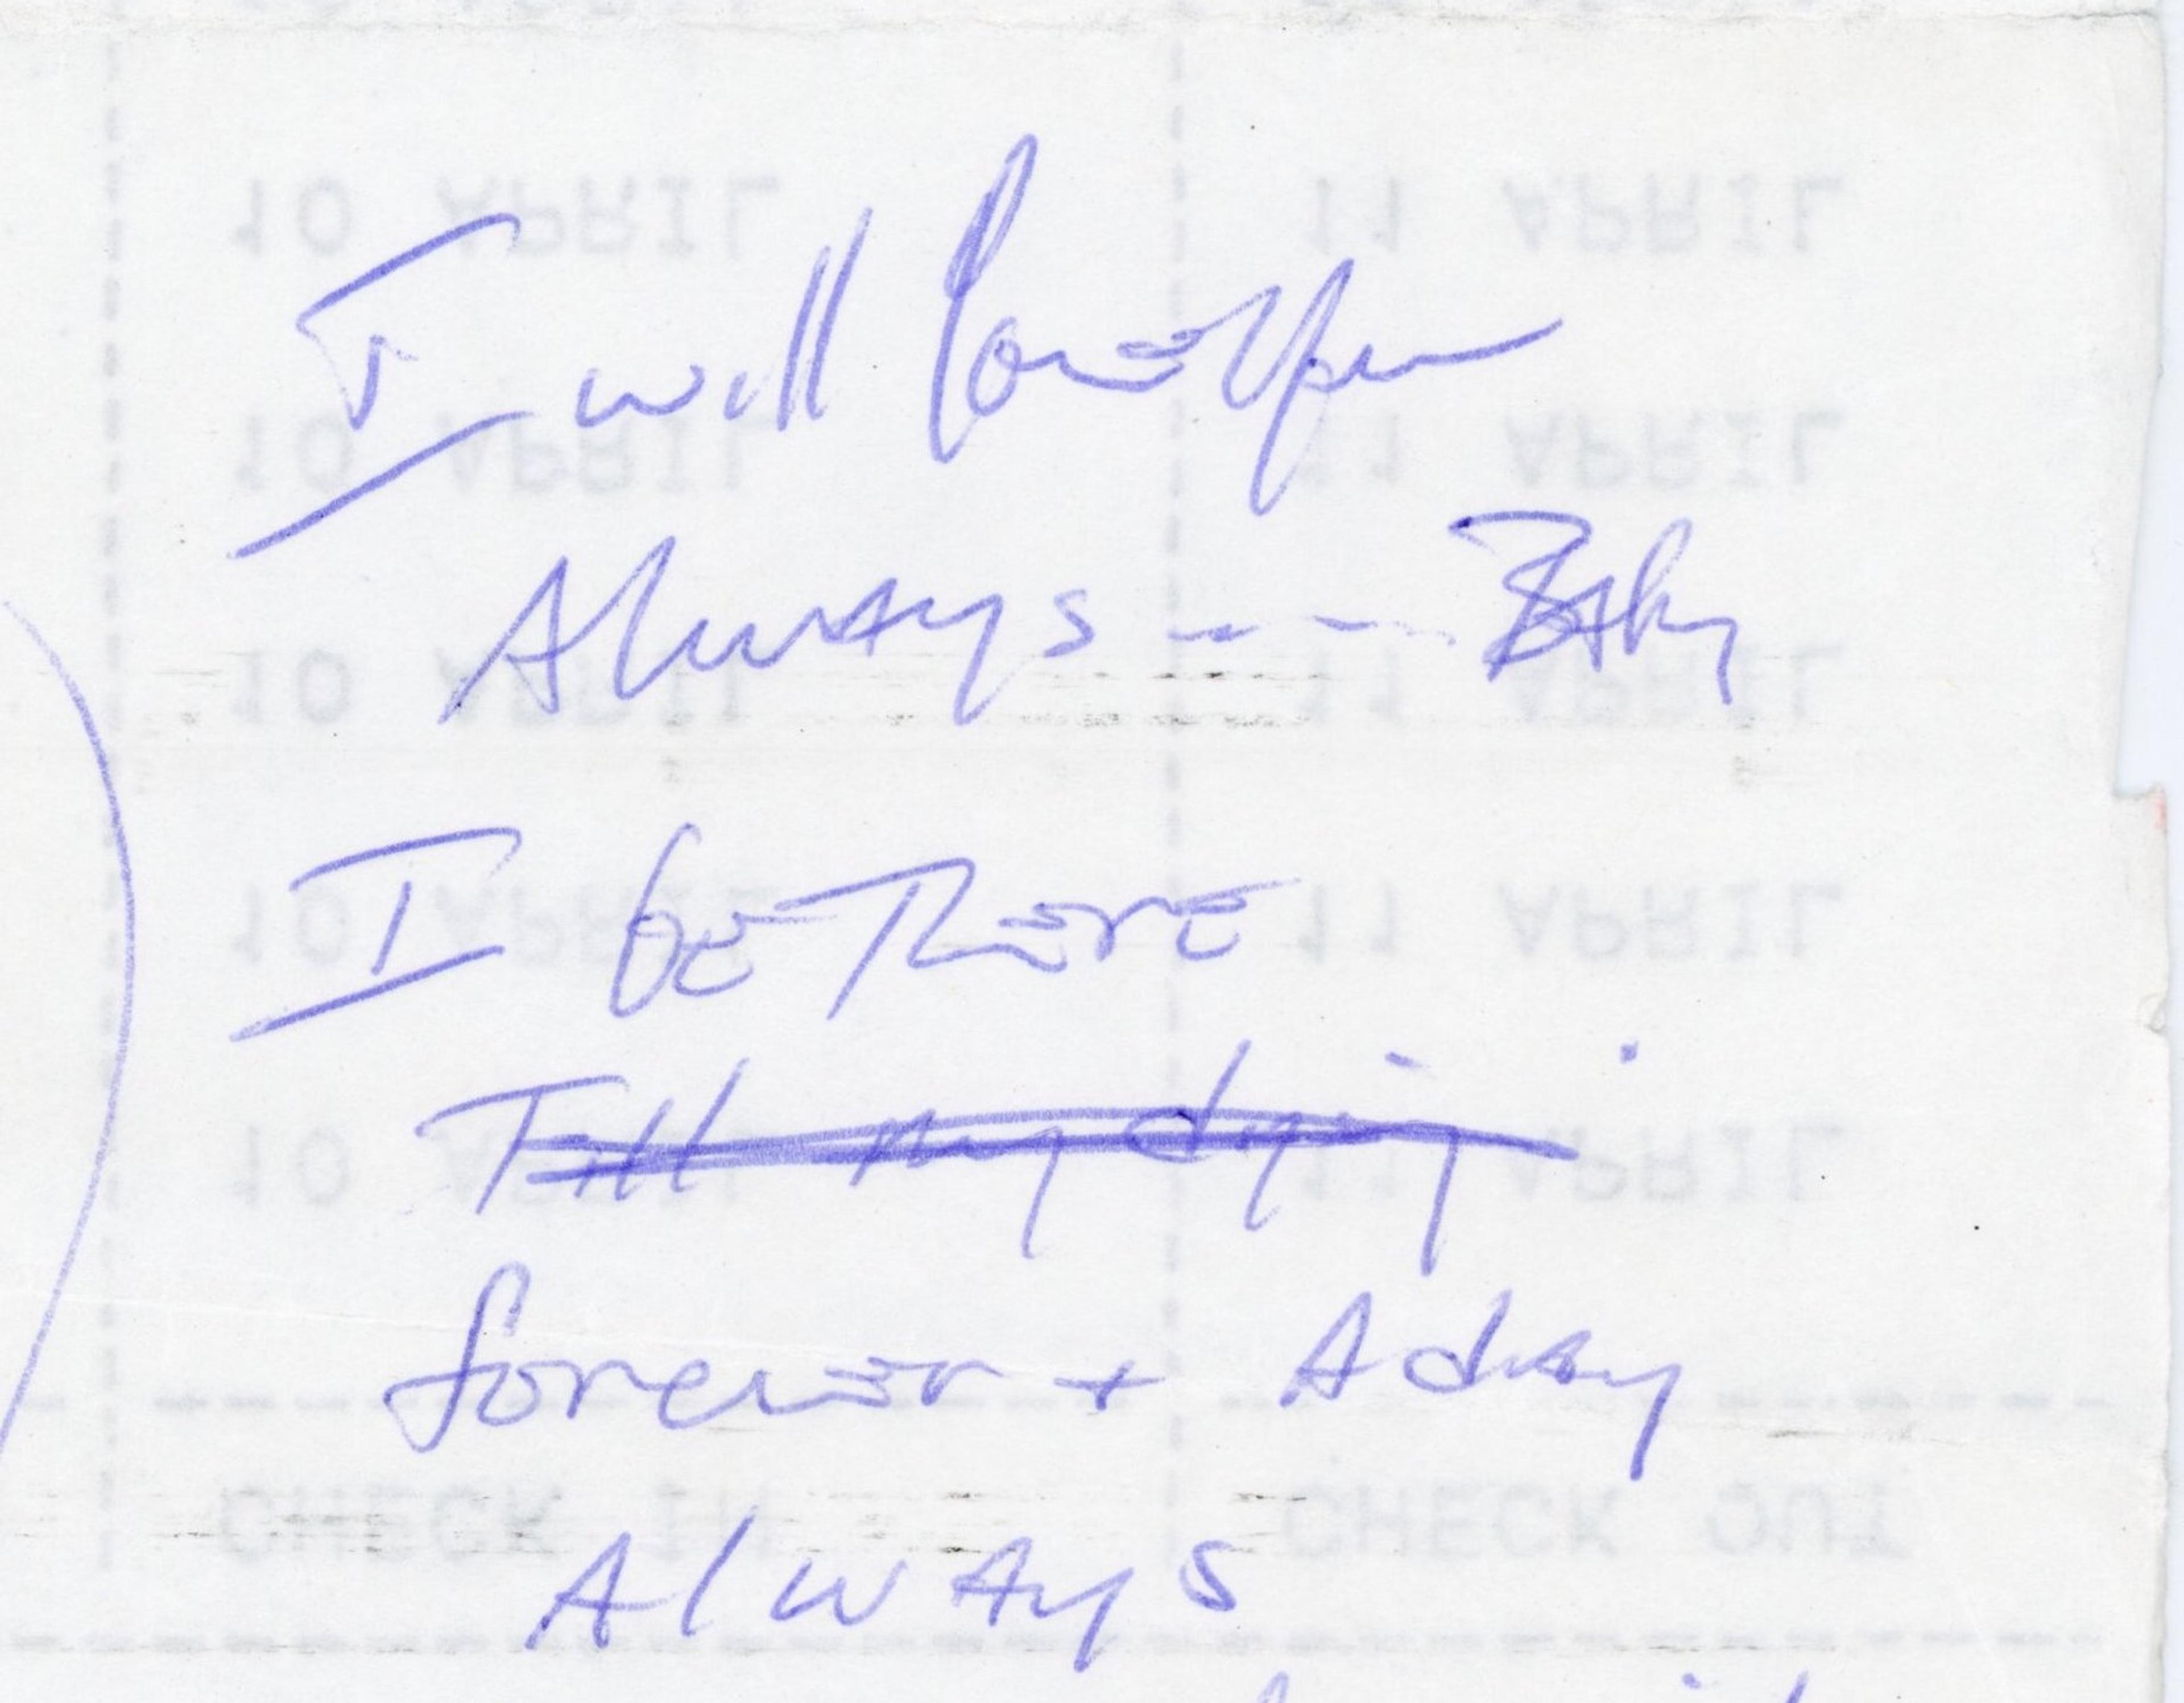 I will love you
Always --- Baby
I be There
Till my dying
forever + A day
Always
10 APRIL 11 APRIL
10 APRIL 11 APRIL
10 APRIL 11 APRIL
10 APRIL 11 APRIL
10 APRIL 11 APRIL
CHECK IN CHECK OUT